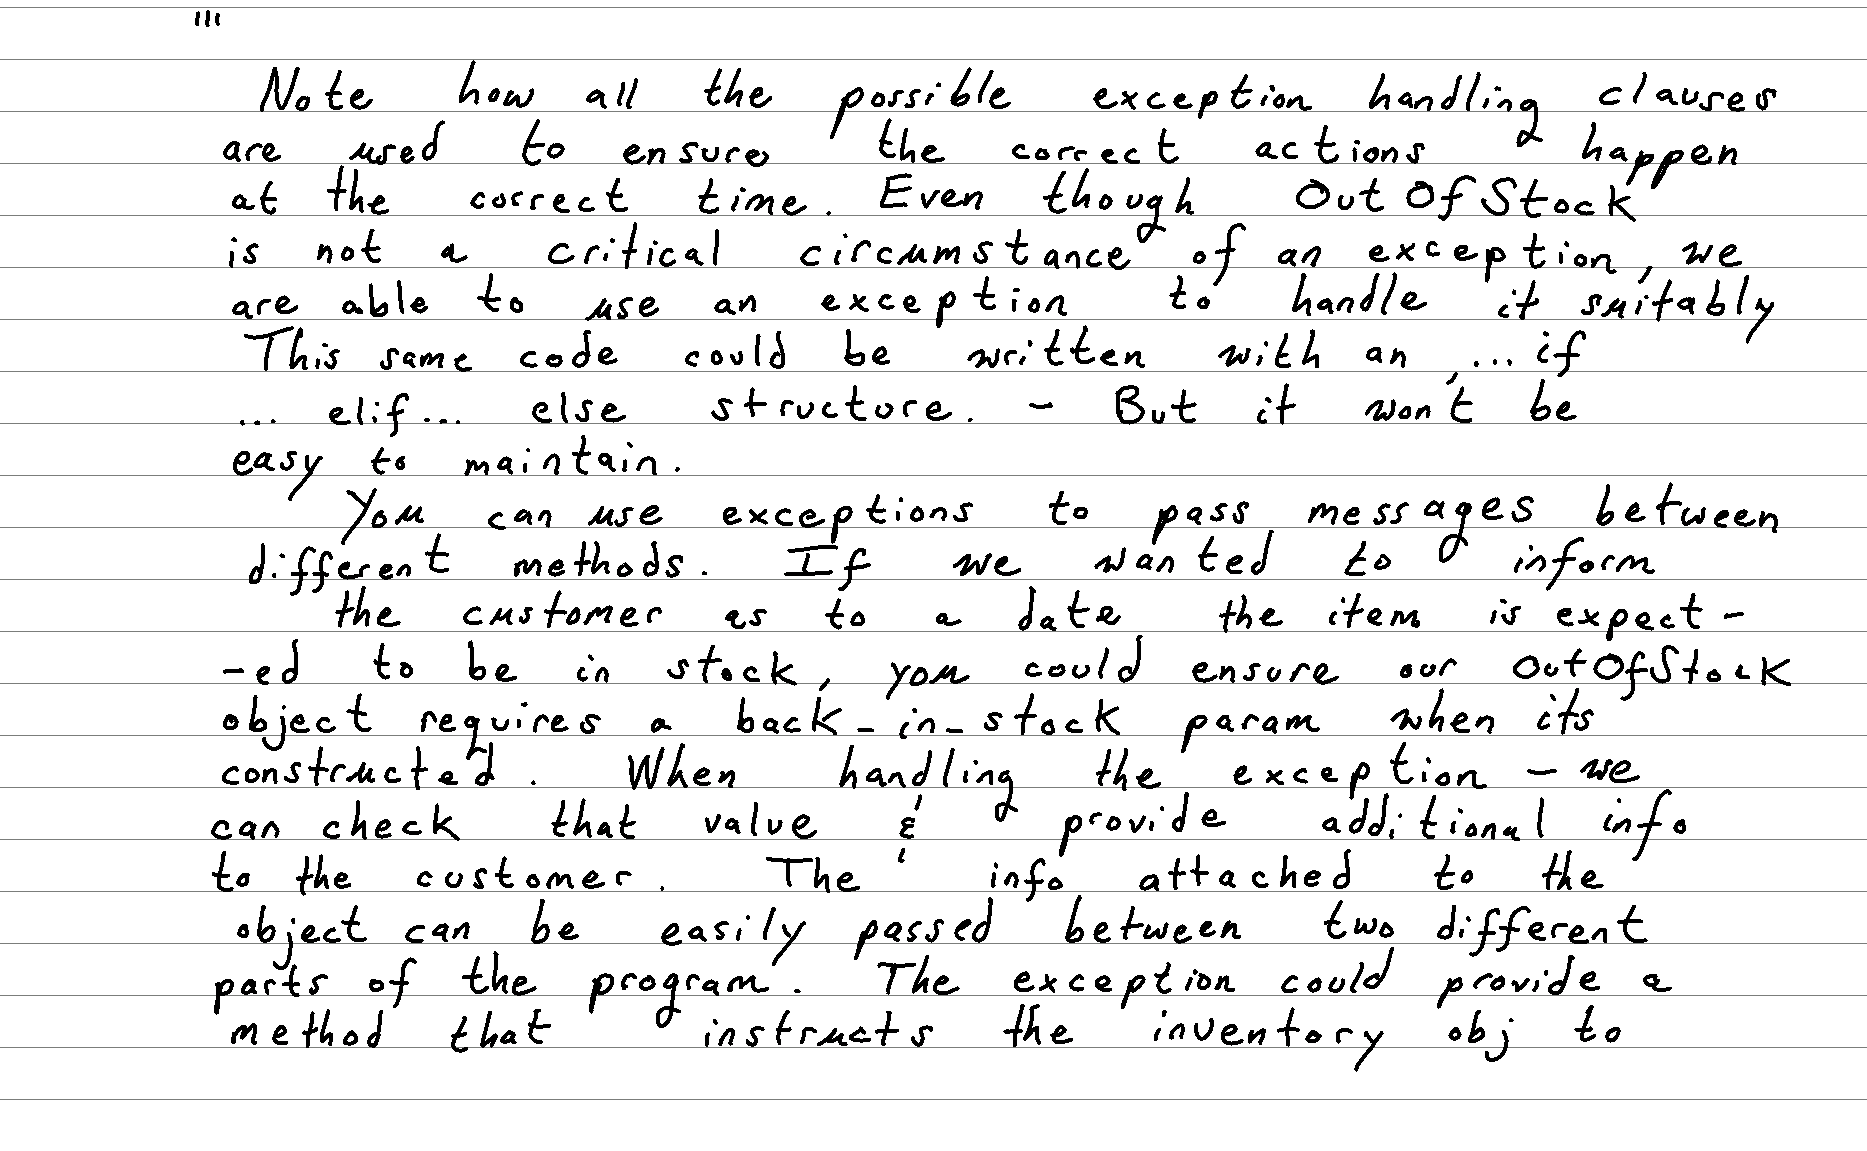 '''
Note how all the possible exception handling clauses
are used to ensure the correct actions happen
at the correct time. Even though OutOfStock
is not a critical circumstance of an exception, we
are able to use an exception to handle it suitably
This same code could be written with an ... if
... elif... else structure. - But it won't be
easy to maintain.
You can use exceptions to pass messages between
different methods. If we wanted to inform
the customer as to a date the item is expect -
-ed to be in stock, you could ensure our OutOfStock
object requires a back_in_stock param when its
constructed. When handling the exception - we
can check that value & provide additional info
to the customer. The info attached to the
object can be easily passed between two different
parts of the program. The exception could provide a
method that instructs the inventory obj to